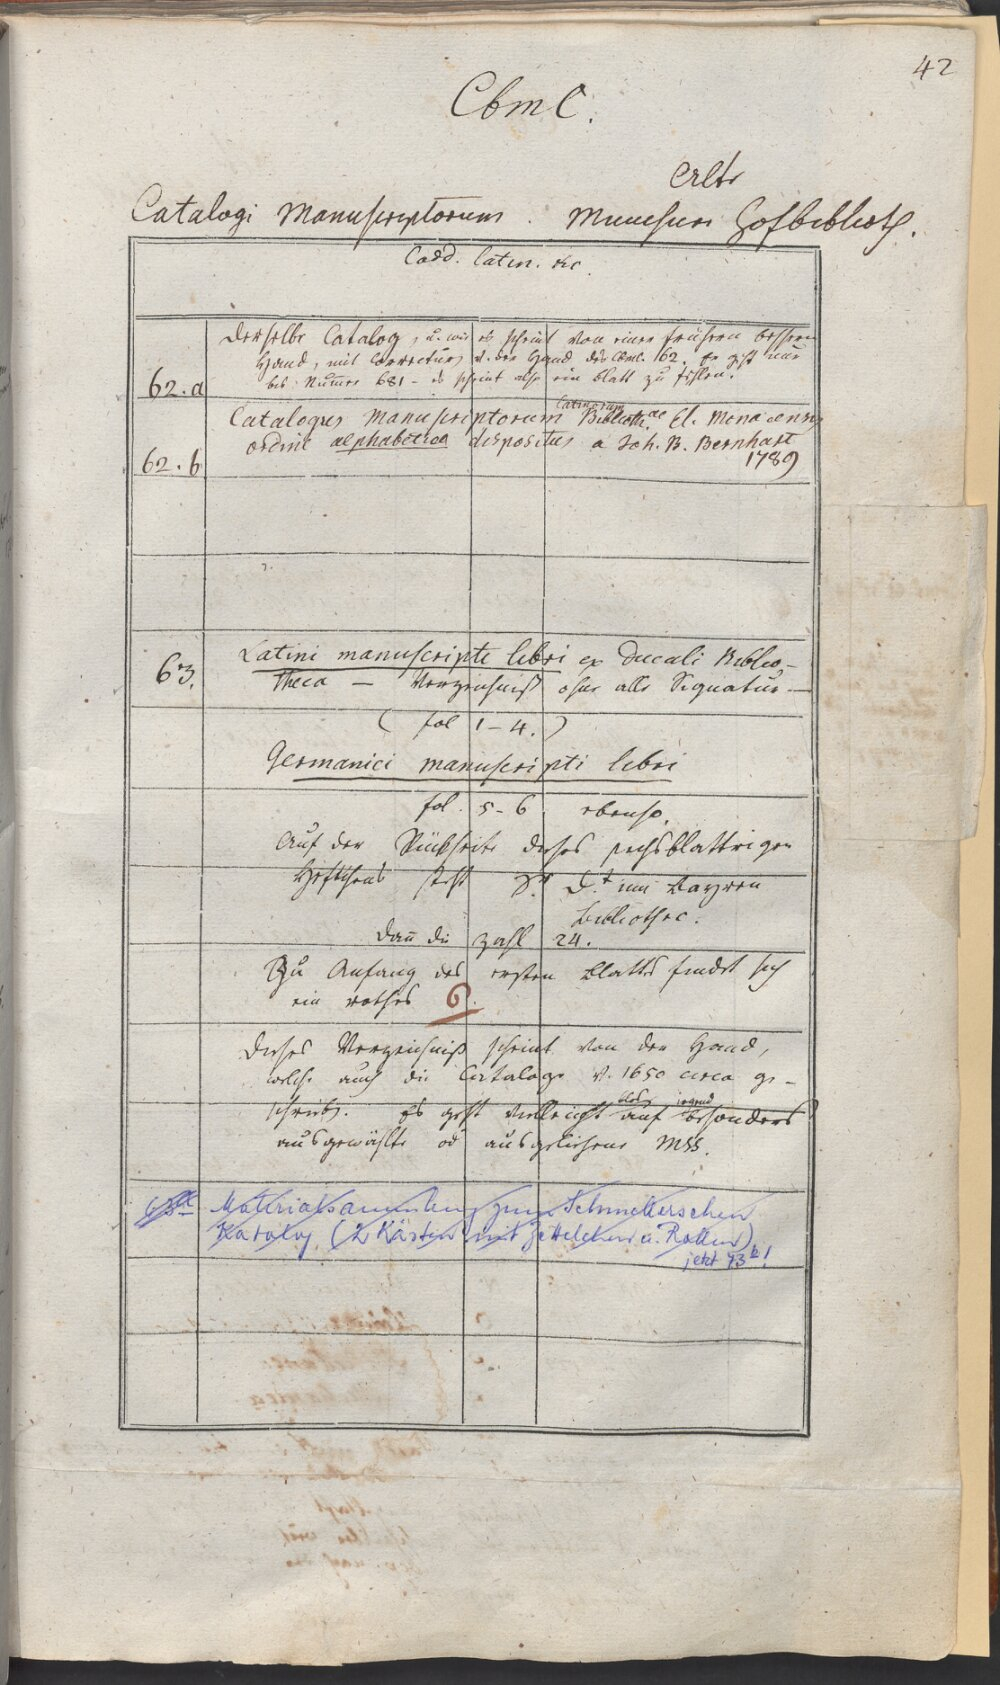 42
Cbm C.
Alte
Catalogi Manuscriptorum. Münchner Hofbiblioth.
Codd. latin. &c.
62.a
Derselbe Catalog, u. wie es scheint von einer frühern bessern
Hand, mit Correctur v. der Hand des Cbm. 162. Er geht nur
bis Numer 681 - es scheint also ein Blatt zu fehlen.
62.b
Catalogus Manuscriptorum latinorum Bibliothecae El. Monacensis
ordine alphabetico dispositus a Joh. B. Bernhart
1789
63.
Latini manuscripti libri ex Ducali Biblio-
theca — Verzeichniß ohne alle Signatur —
( fol 1-4. )
Germanici manuscripti libri
fol. 5-6 ebenso.
Auf der Rückseite dieses sechsblättrigen
Heftchens steht D.t inn Bayren
Bibliothec.
Dann die Zahl 24.
Zu Anfang des ersten Blatts findet sich
ein rothes 6.
Dieses Verzeichniß scheint von der Hand,
welche auch die Cataloge v. 1650 circa ge-
schrieb. Es geht vielleicht blos auf irgend besonders
ausgewählte od ausgeliehene Mss.
63a
Materialsammlung zum Schmellerschen
Katalog (2 Kästen mit Zettelchen u. Rollen)
jetzt 73b!